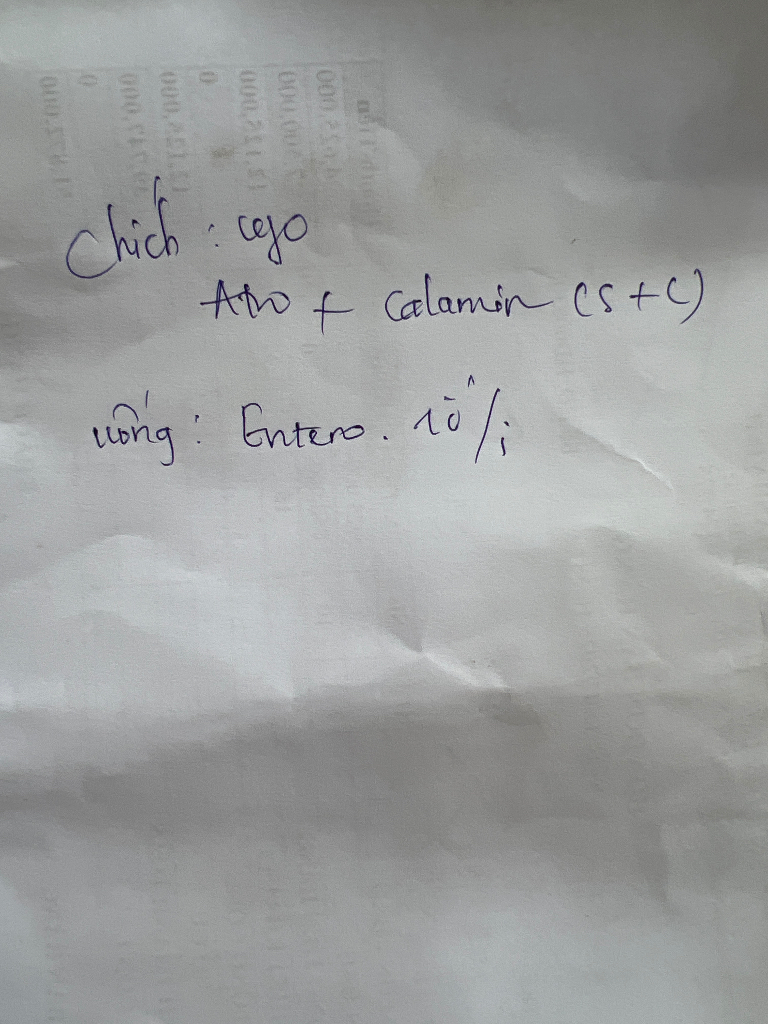 Chích : cefo
Atro + Calamin (S + C)
uống : Entero.